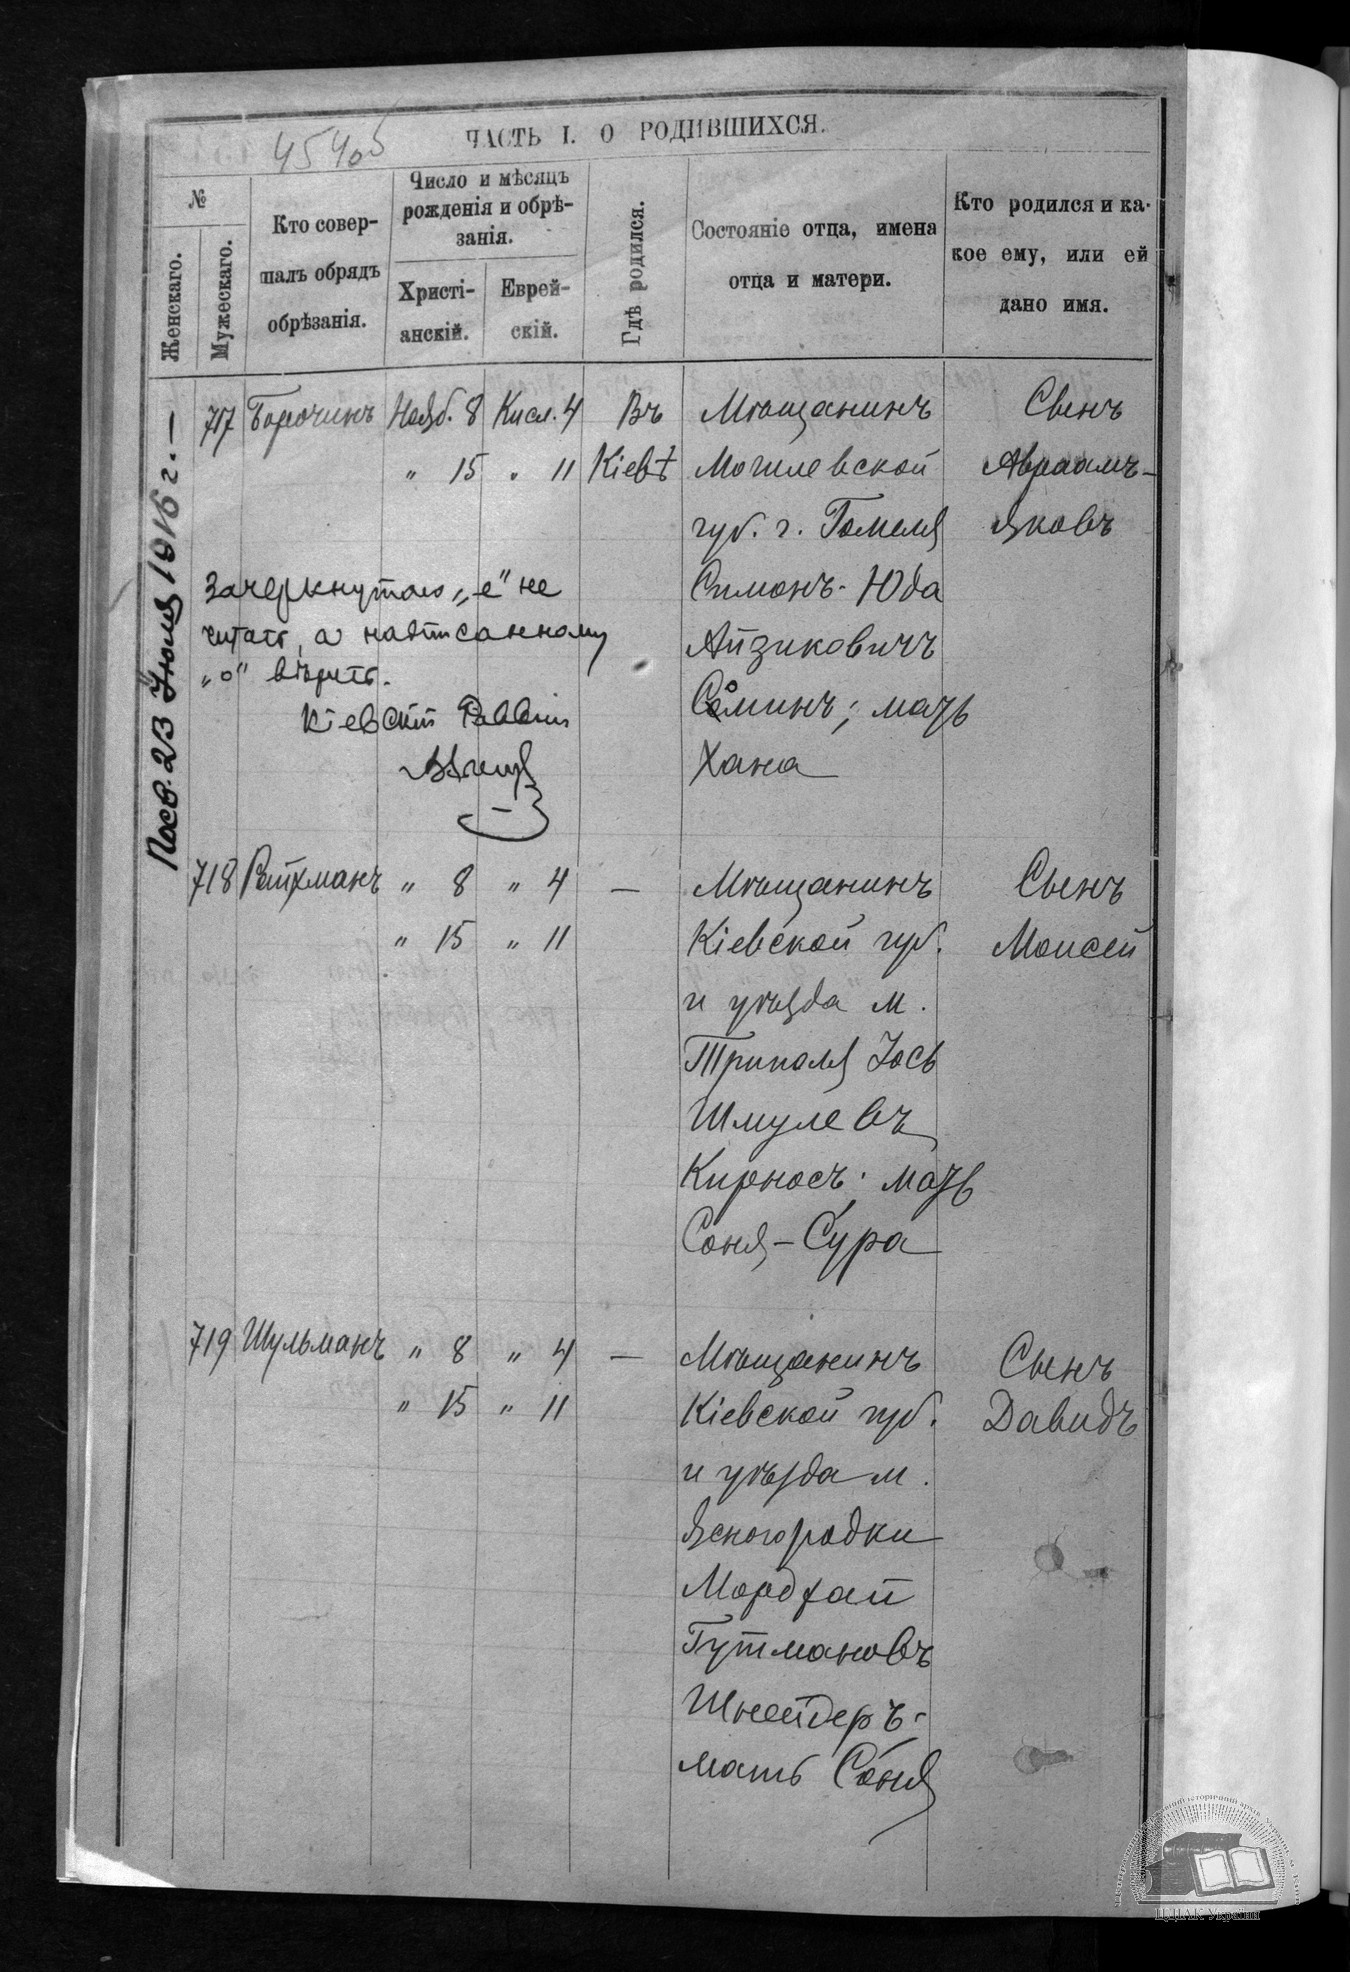 ЧАСТЬ I. О РОДИВШИХСЯ.
№
Женскаго.
Мужескаго.
Кто совер-
шалъ обрядъ
обрѣзанія.
Число и мѣсяцъ
рожденія и обрѣ-
занія.
Христі-
анскій.
Еврей-
скій.
Гдѣ родился.
Состояніе отца, имена
отца и матери.
Кто родился и ка-
кое ему, или ей
дано имя.
717 Борочинъ Нояб. 8 Кисл. 4 Въ Мѣщанинъ Сынъ
" 15 " 11 Кіевѣ Могилевской Авраамъ-
губ. г. Гомеля Яковъ
Симонъ-Юда
Айзиковичъ
Соминъ; мать
Хана
Зачеркнутаго „е" не
читать, а надписанному
„о" вѣрить.
Кіевскій Раввинъ
23 Іюля 1916 г. —
718 Ройхманъ " 8 " 4 — Мѣщанинъ Сынъ
" 15 " 11 Кіевской губ. Моисей
и уѣзда м.
Триполя Іось
Шмулевъ
Кирносъ; мать
Соня-Сура
719 Шульманъ " 8 " 4 — Мѣщанинъ Сынъ
" 15 " 11 Кіевской губ. Давидъ
и уѣзда м.
Ясногородки
Мордхай
Гутмановъ
Шнейдеръ-
мать Соня
ЦДІАК України